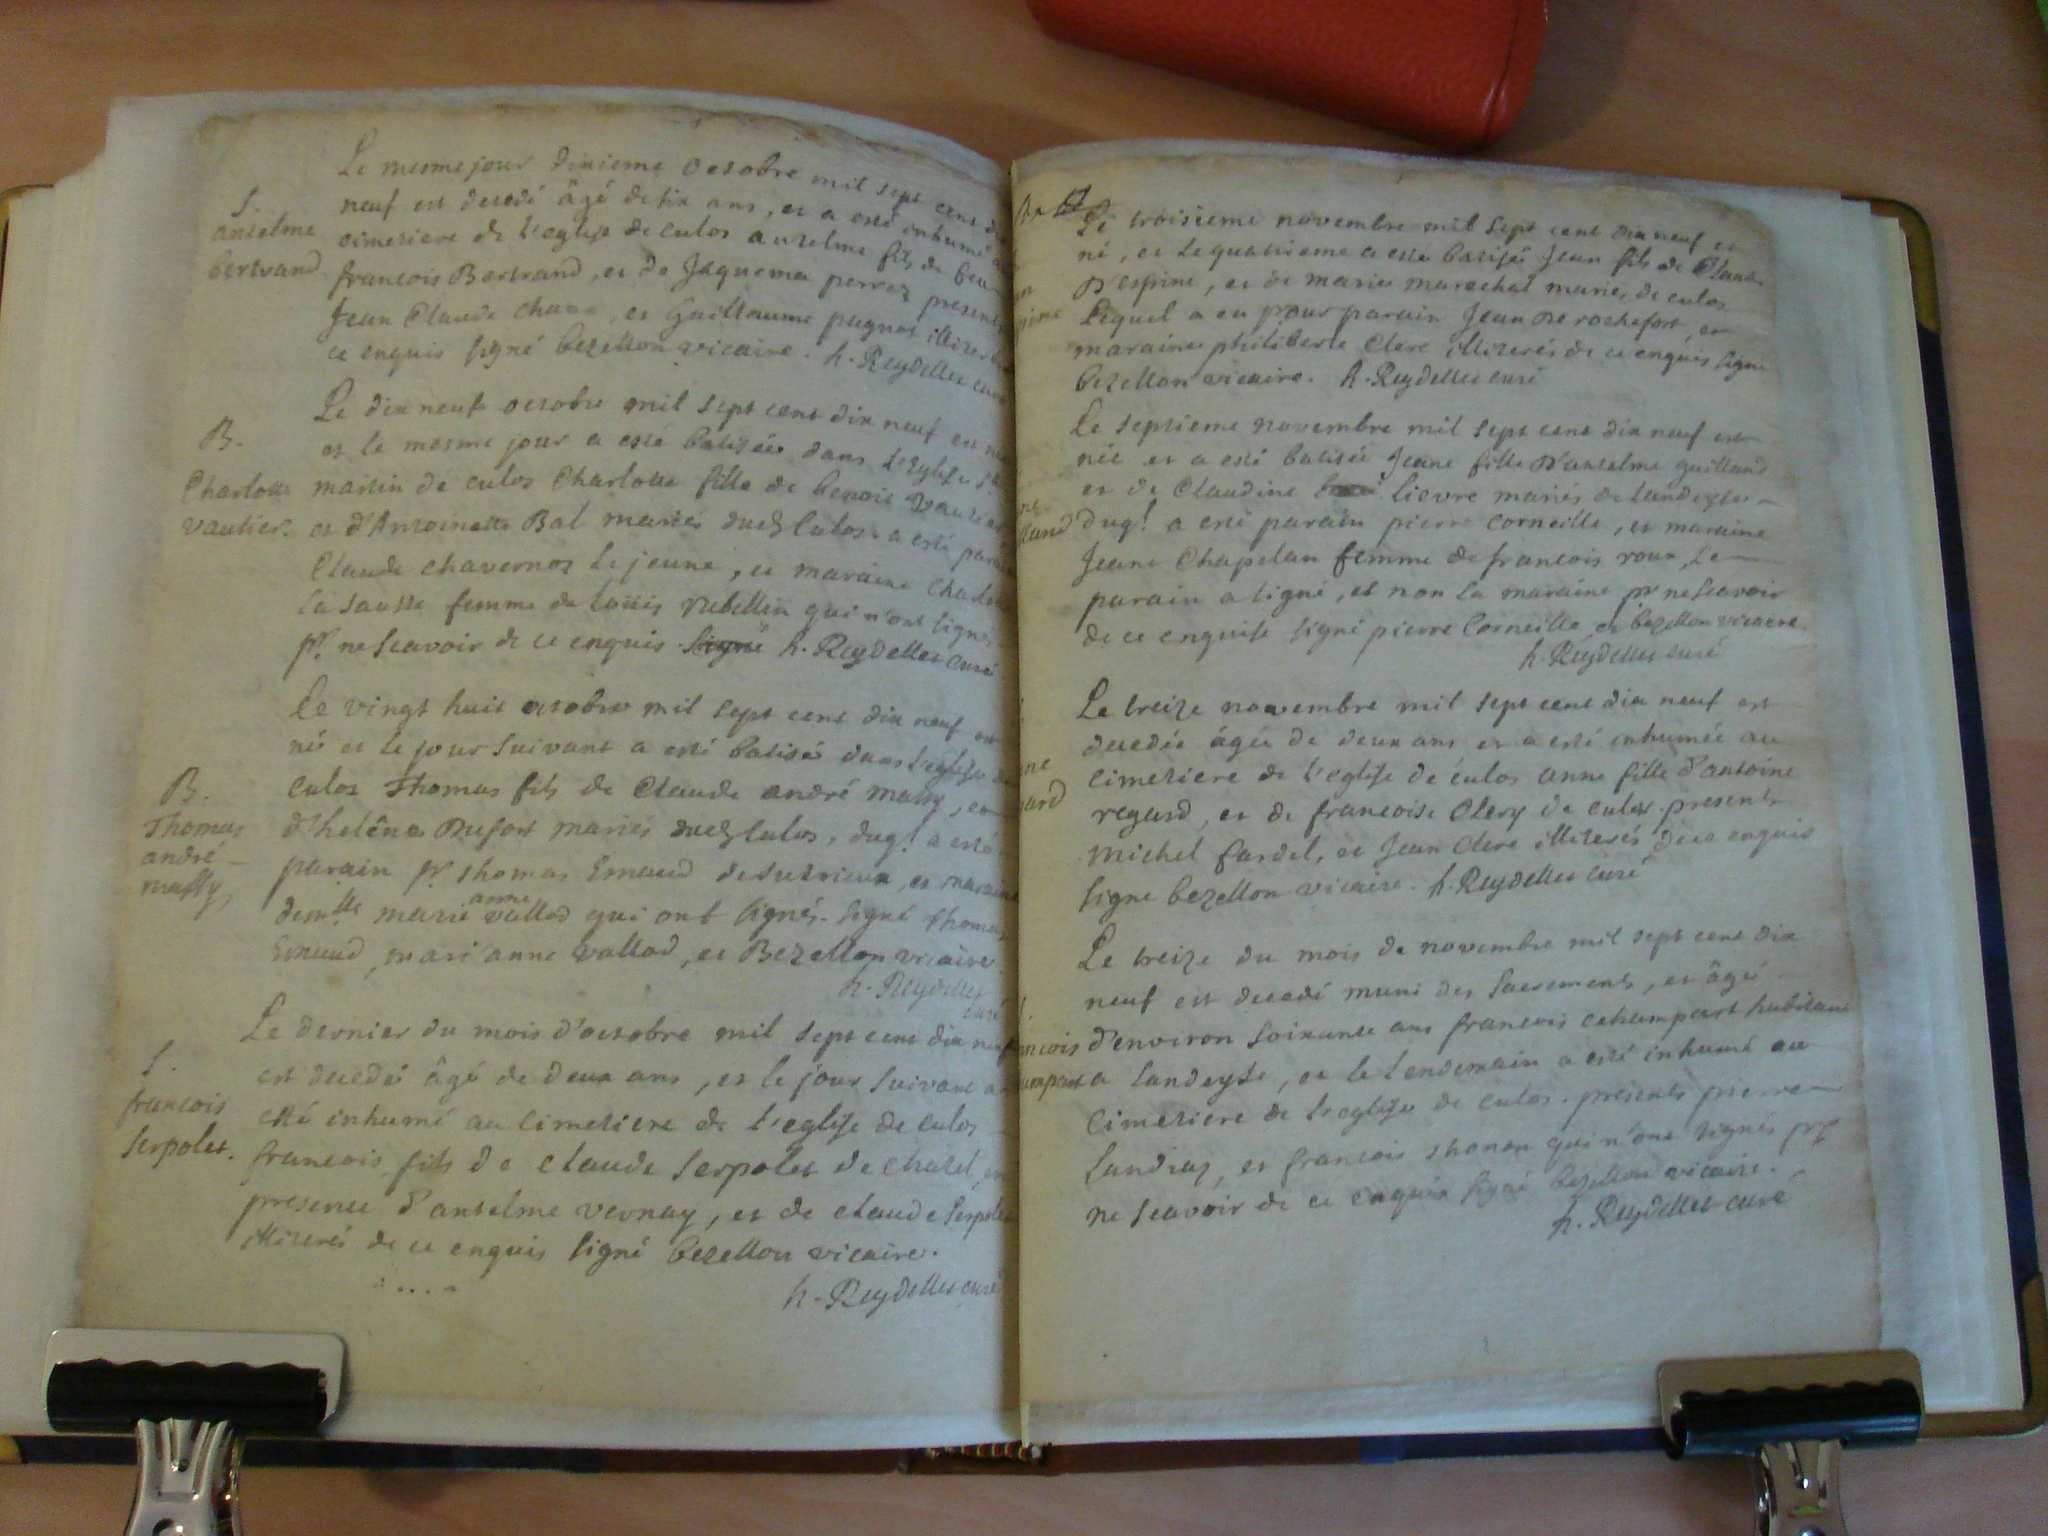 Le mesme jour dixieme octobre mil sept cent
S. neuf est decedé âgé de six ans, et a esté inhumé
anselme cimetiere de l'eglise de culos anselme fils de
bertrand francois Bertrand, et de Jaquema perret presents
Jean Claude, et Guillaume pugnet
ce enquis signé bezellon vicaire. h. Reydellet curé
Le dix neuf octobre mil sept cent dix neuf est
B. et le mesme jour a esté batisée dans l'eglise
Charlotte martin de culos Charlotte fille de benoit vautier
vautier. et d'Antoinette Bal mariés dud culos. a esté
Claude chavernoz le jeune, et maraine
la sausse femme de loüis rubellin qui n'ont signés
pr. ne scavoir de ce enquis signé h. Reydellet curé
Le vingt huit octobre mil sept cent dix neuf
né et le jour suivant a esté batisé dans l'eglise
B. culos Thomas fils de Claude andré massy, et
Thomas d'helêne Dufort mariés dud culos, dug! a esté
andré parain pr. thomas Emaud de sutrieux, et maraine
massy, demlle marie anne vallod qui ont signés. signé thomas
Emaud, mari anne vallod, et Bezellon vicaire.
h. Reydellet
curé
Le dernier du mois d'octobre mil sept cent dix neuf
S. est decedé âgé de deux ans, et le jour suivant a
francois esté inhumé au cimetiere de l'eglise de culos
serpolet. francois fils de claude serpolet de chatel,
presence d'anselme vernay, et de claude serpolet
illiterés de ce enquis signé bezellon vicaire.
h. Reydellet curé
Le troisieme novembre mil sept cent dix neuf est
né, et le quatrieme a esté batisé Jean fils de Claude
D'espine, et de marie marechal mariés de culos
lequel a eu pour parain Jean De rochefort, et
maraine philiberte Clerc illiterés de ce enquis signé
bezellon vicaire. h. Reydellet curé
Le septieme novembre mil sept cent dix neuf est
née et a esté batisée Jeane fille D'anselme guilland
et de Claudine lievre mariés de landeyse
dug! a esté parain pierre corneille, et maraine
Jeane Chapelan femme de francois roux, Le
parain a signé, et non la maraine pr ne scavoir
de ce enquise signé pierre Corneille et bezellon vicaire.
h. Reydellet curé
Le treize novembre mil sept cent dix neuf est
decedée âgée de deux ans et a esté inhumée au
cimetiere de l'eglise de culos anne fille d'antoine
regard, et de francoise Clery de culos. presents
michel fardel, et Jean Clerc illiterés de ce enquis
signé bezellon vicaire. h. Reydellet curé
Le treize du mois de novembre mil sept cent dix
neuf est decedé muni des sacrements, et âgé
d'environ soixante ans francois champart habitant
a landeyse, et le lendemain a esté inhumé au
cimetiere de l'eglise de culos. presents pierre
landraz, et francois thonon qui n'ont signés pr
ne scavoir de ce enquis signé bezellon vicaire.
h. Reydellet curé